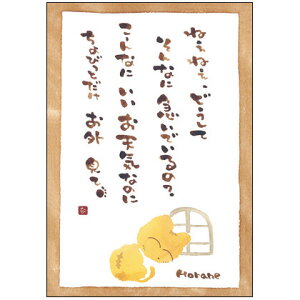 ねぇねぇ どうして
そんなに 急いでいるの?
こんなに いい お天気なのに
ちょびっとだけ お外 見て